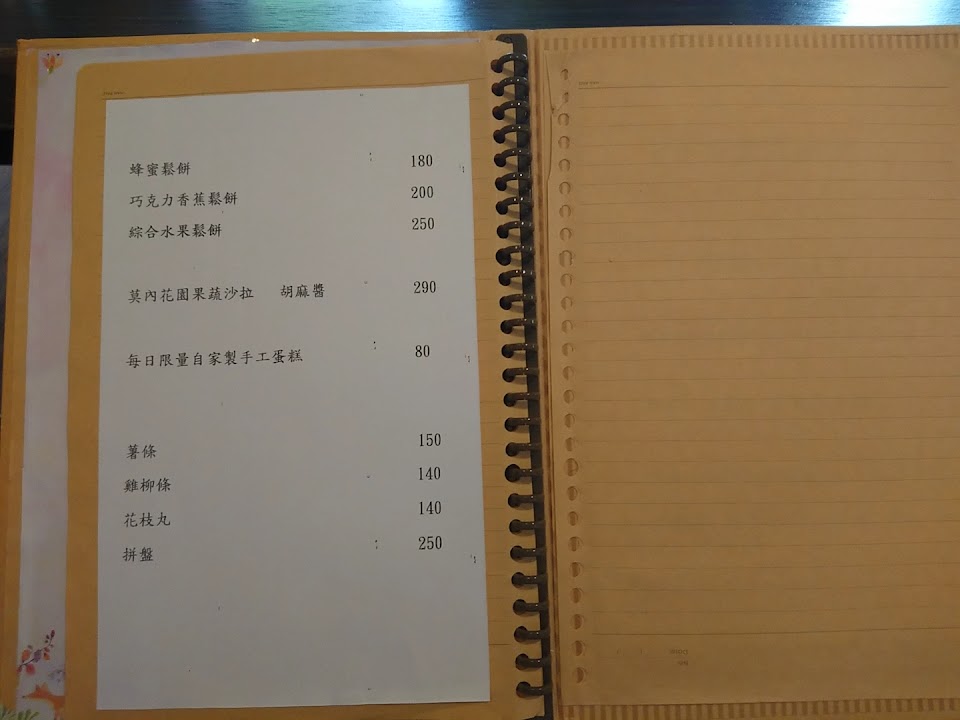 蜂蜜鬆餅 180
巧克力香蕉鬆餅 200
綜合水果鬆餅 250
莫內花園果蔬沙拉 胡麻醬 290
每日限量自家製手工蛋糕 80
薯條 150
雞柳條 140
花枝丸 140
拼盤 250